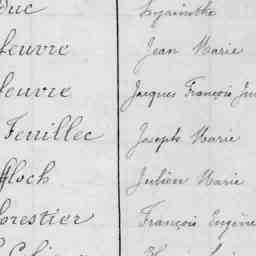 duc Hyacinthe
feuvre Jean Marie
feuvre Jacques François
Feuillec Joseph Marie
ffloch Julien Marie
orestier François Eugène